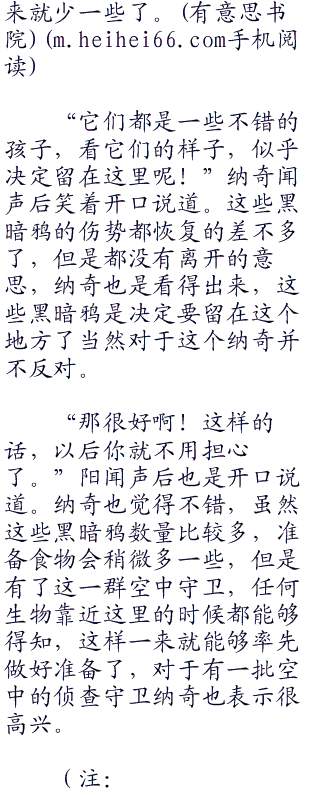 来就少一些了。(有意思书
院)(m.heihei66.com手机阅
读)
“它们都是一些不错的
孩子，看它们的样子，似乎
决定留在这里呢！”纳奇闻
声后笑着开口说道。这些黑
暗鸦的伤势都恢复的差不多
了，但是都没有离开的意
思，纳奇也是看得出来，这
些黑暗鸦是决定要留在这个
地方了当然对于这个纳奇并
不反对。
“那很好啊！这样的
话，以后你就不用担心
了。”阳闻声后也是开口说
道。纳奇也觉得不错，虽然
这些黑暗鸦数量比较多，准
备食物会稍微多一些，但是
有了这一群空中守卫，任何
生物靠近这里的时候都能够
得知，这样一来就能够率先
做好准备了，对于有一批空
中的侦查守卫纳奇也表示很
高兴。
（注：